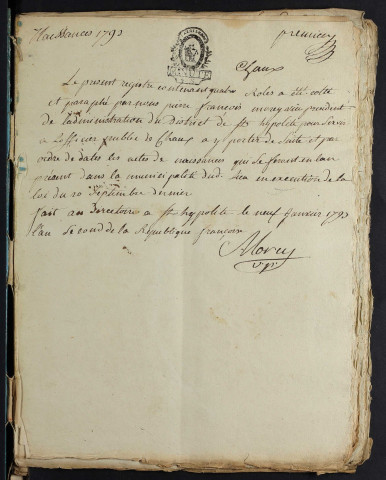 Naissances 1793
premier
Chaux
Le present registre contenant quatre Roles a été cotté
et paraphé par nous pierre françois morey vice president
de Ladministration du District de St hypolite pour servir
a Lofficier publice de Chaux a y porter de suite et par
ordre de dates les actes de naissances qui se feront en lan
présent dans la municipalité dud. lieu en execution de la
loi du 20 Septembre dernier
fait au Directoire a St hypolite le neuf janvier 1793
Lan Second de la République françoise
Morey
v.p.